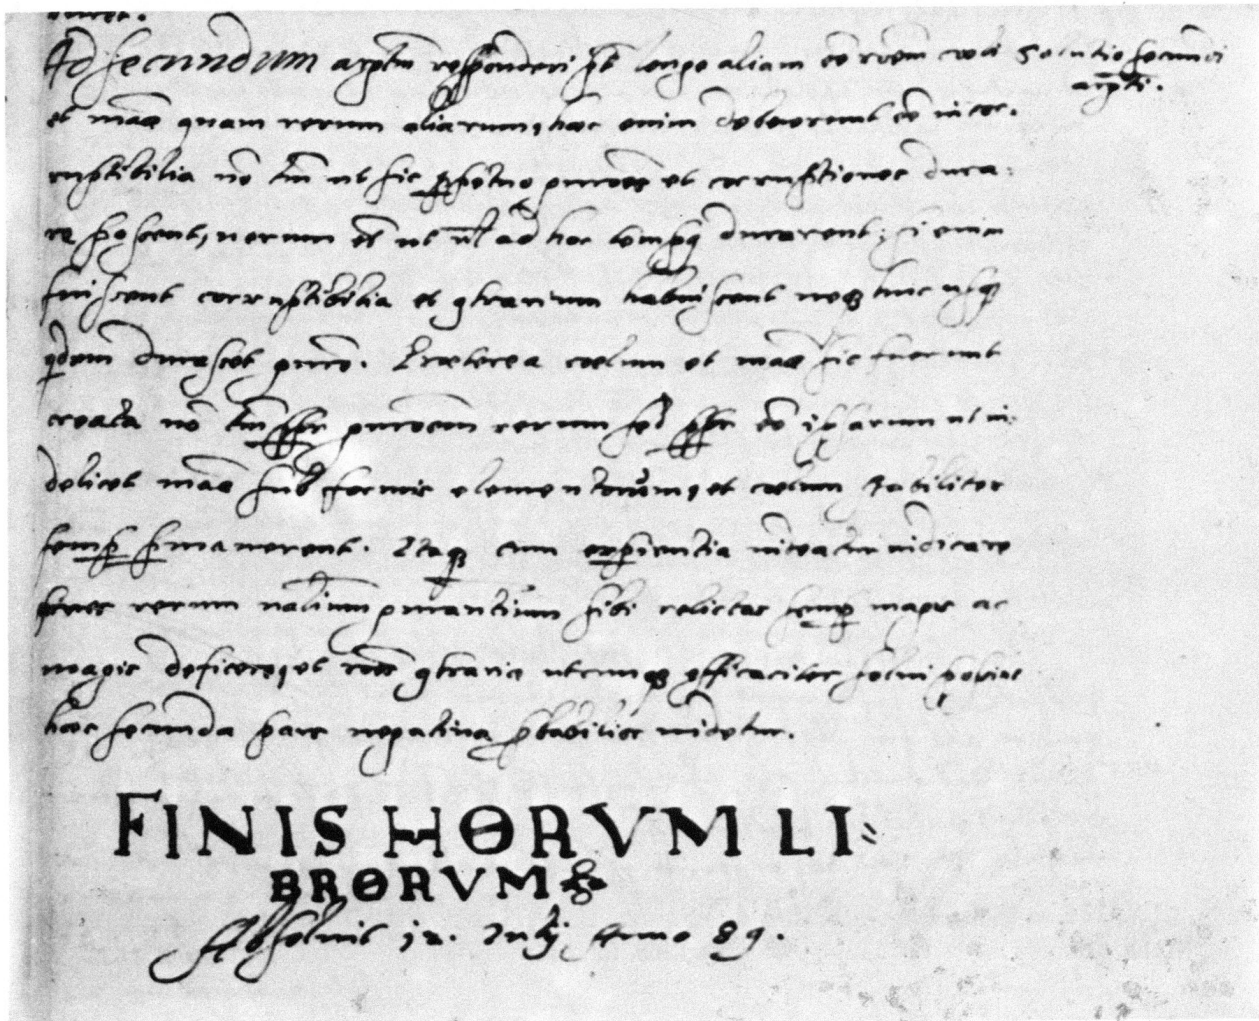 Ad secundum argtm responderi pt longe aliam ee rōem coeli
Solutio secundi
argti.
et māae quam rerum aliarum, haec enim debuerunt ee incor-
ruptibilia nō tm̄ ut sic perpetuo et corruptiones dura-
re possent, uerum et ut ad hoc durarent; si enim
fuissent corruptibilia et 9trarium habuissent usq
durasset Praeterea coelum et māae sic fuerunt
creata nō tm̄ propter rerum sed propter ee ipsarum ut ui-
delicet māae sub formis elementorum, et coelum stabiliter
semp pmanerent. Itaq cum experientia uideatur indicare
rerum nālium sibi relictas semp magis ac
magis deficere, et rōes 9trariae utrumq efficaciter solui possint
haec secunda pars negatiua pbabilior uidetur.
FINIS HORVM LI=
BRORVM
Absoluit 12. Julij Anno 89.